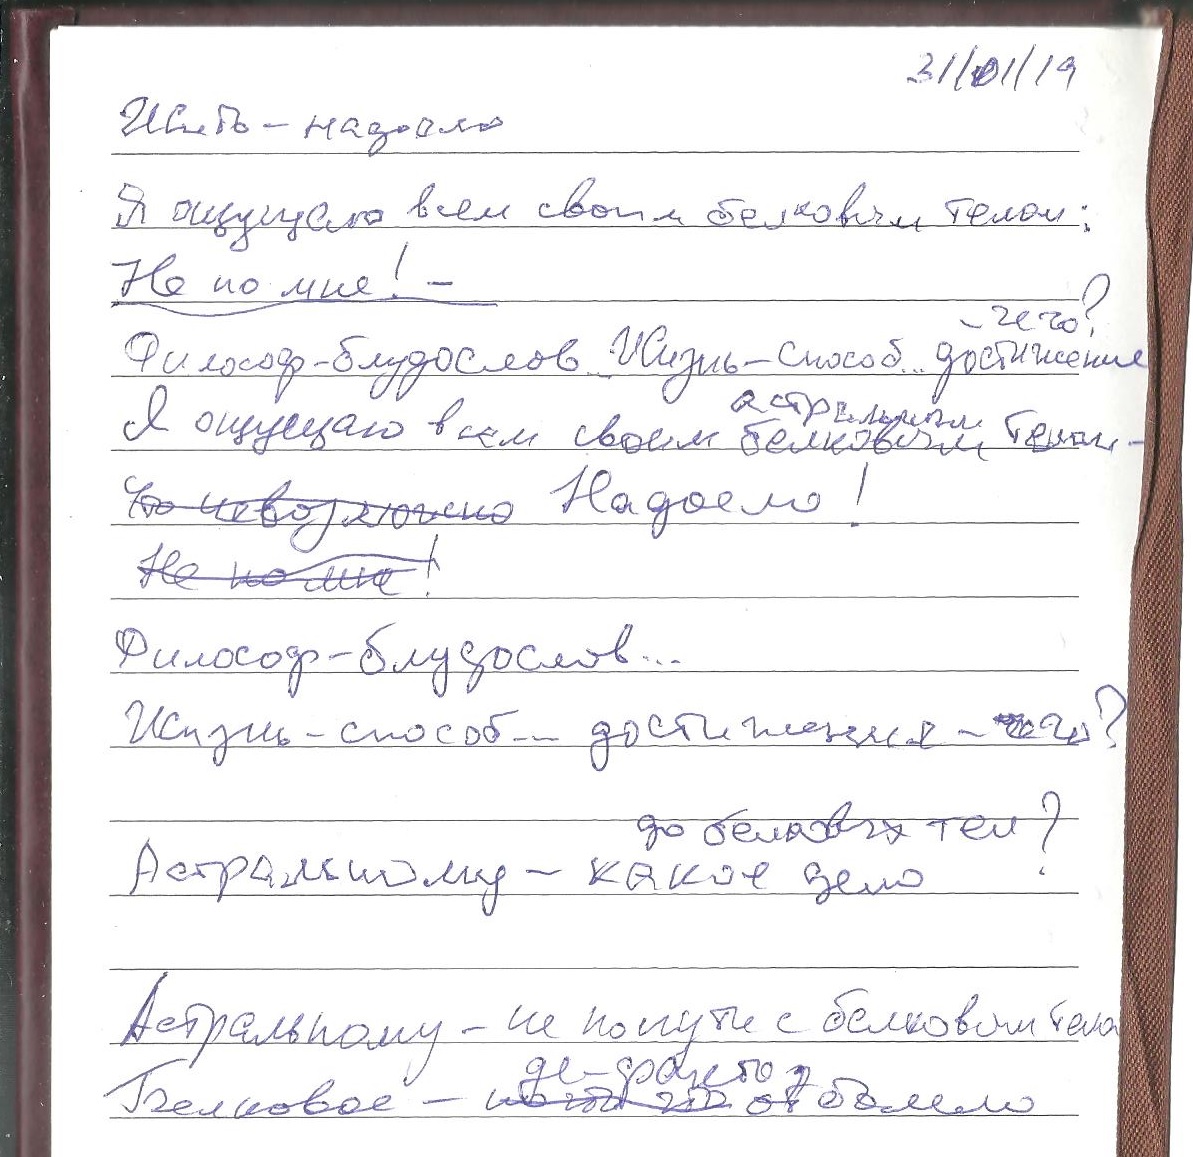 31/01/19
Жить - надоело
Я ощущаю всем своим белковым телом:
Не по мне! -
- чего?
Философ-блудослов... Жизнь - способ... достижения
астральным
Я ощущаю всем своим белковым телом -
Что невозможно Надоело!
Не по мне!
Философ-блудослов...
Жизнь - способ... достижения - чего?
до белковых тел?
Астральному - какое дело
Астральному - не по пути с белковым тело
де-факто
Белковое - отболело